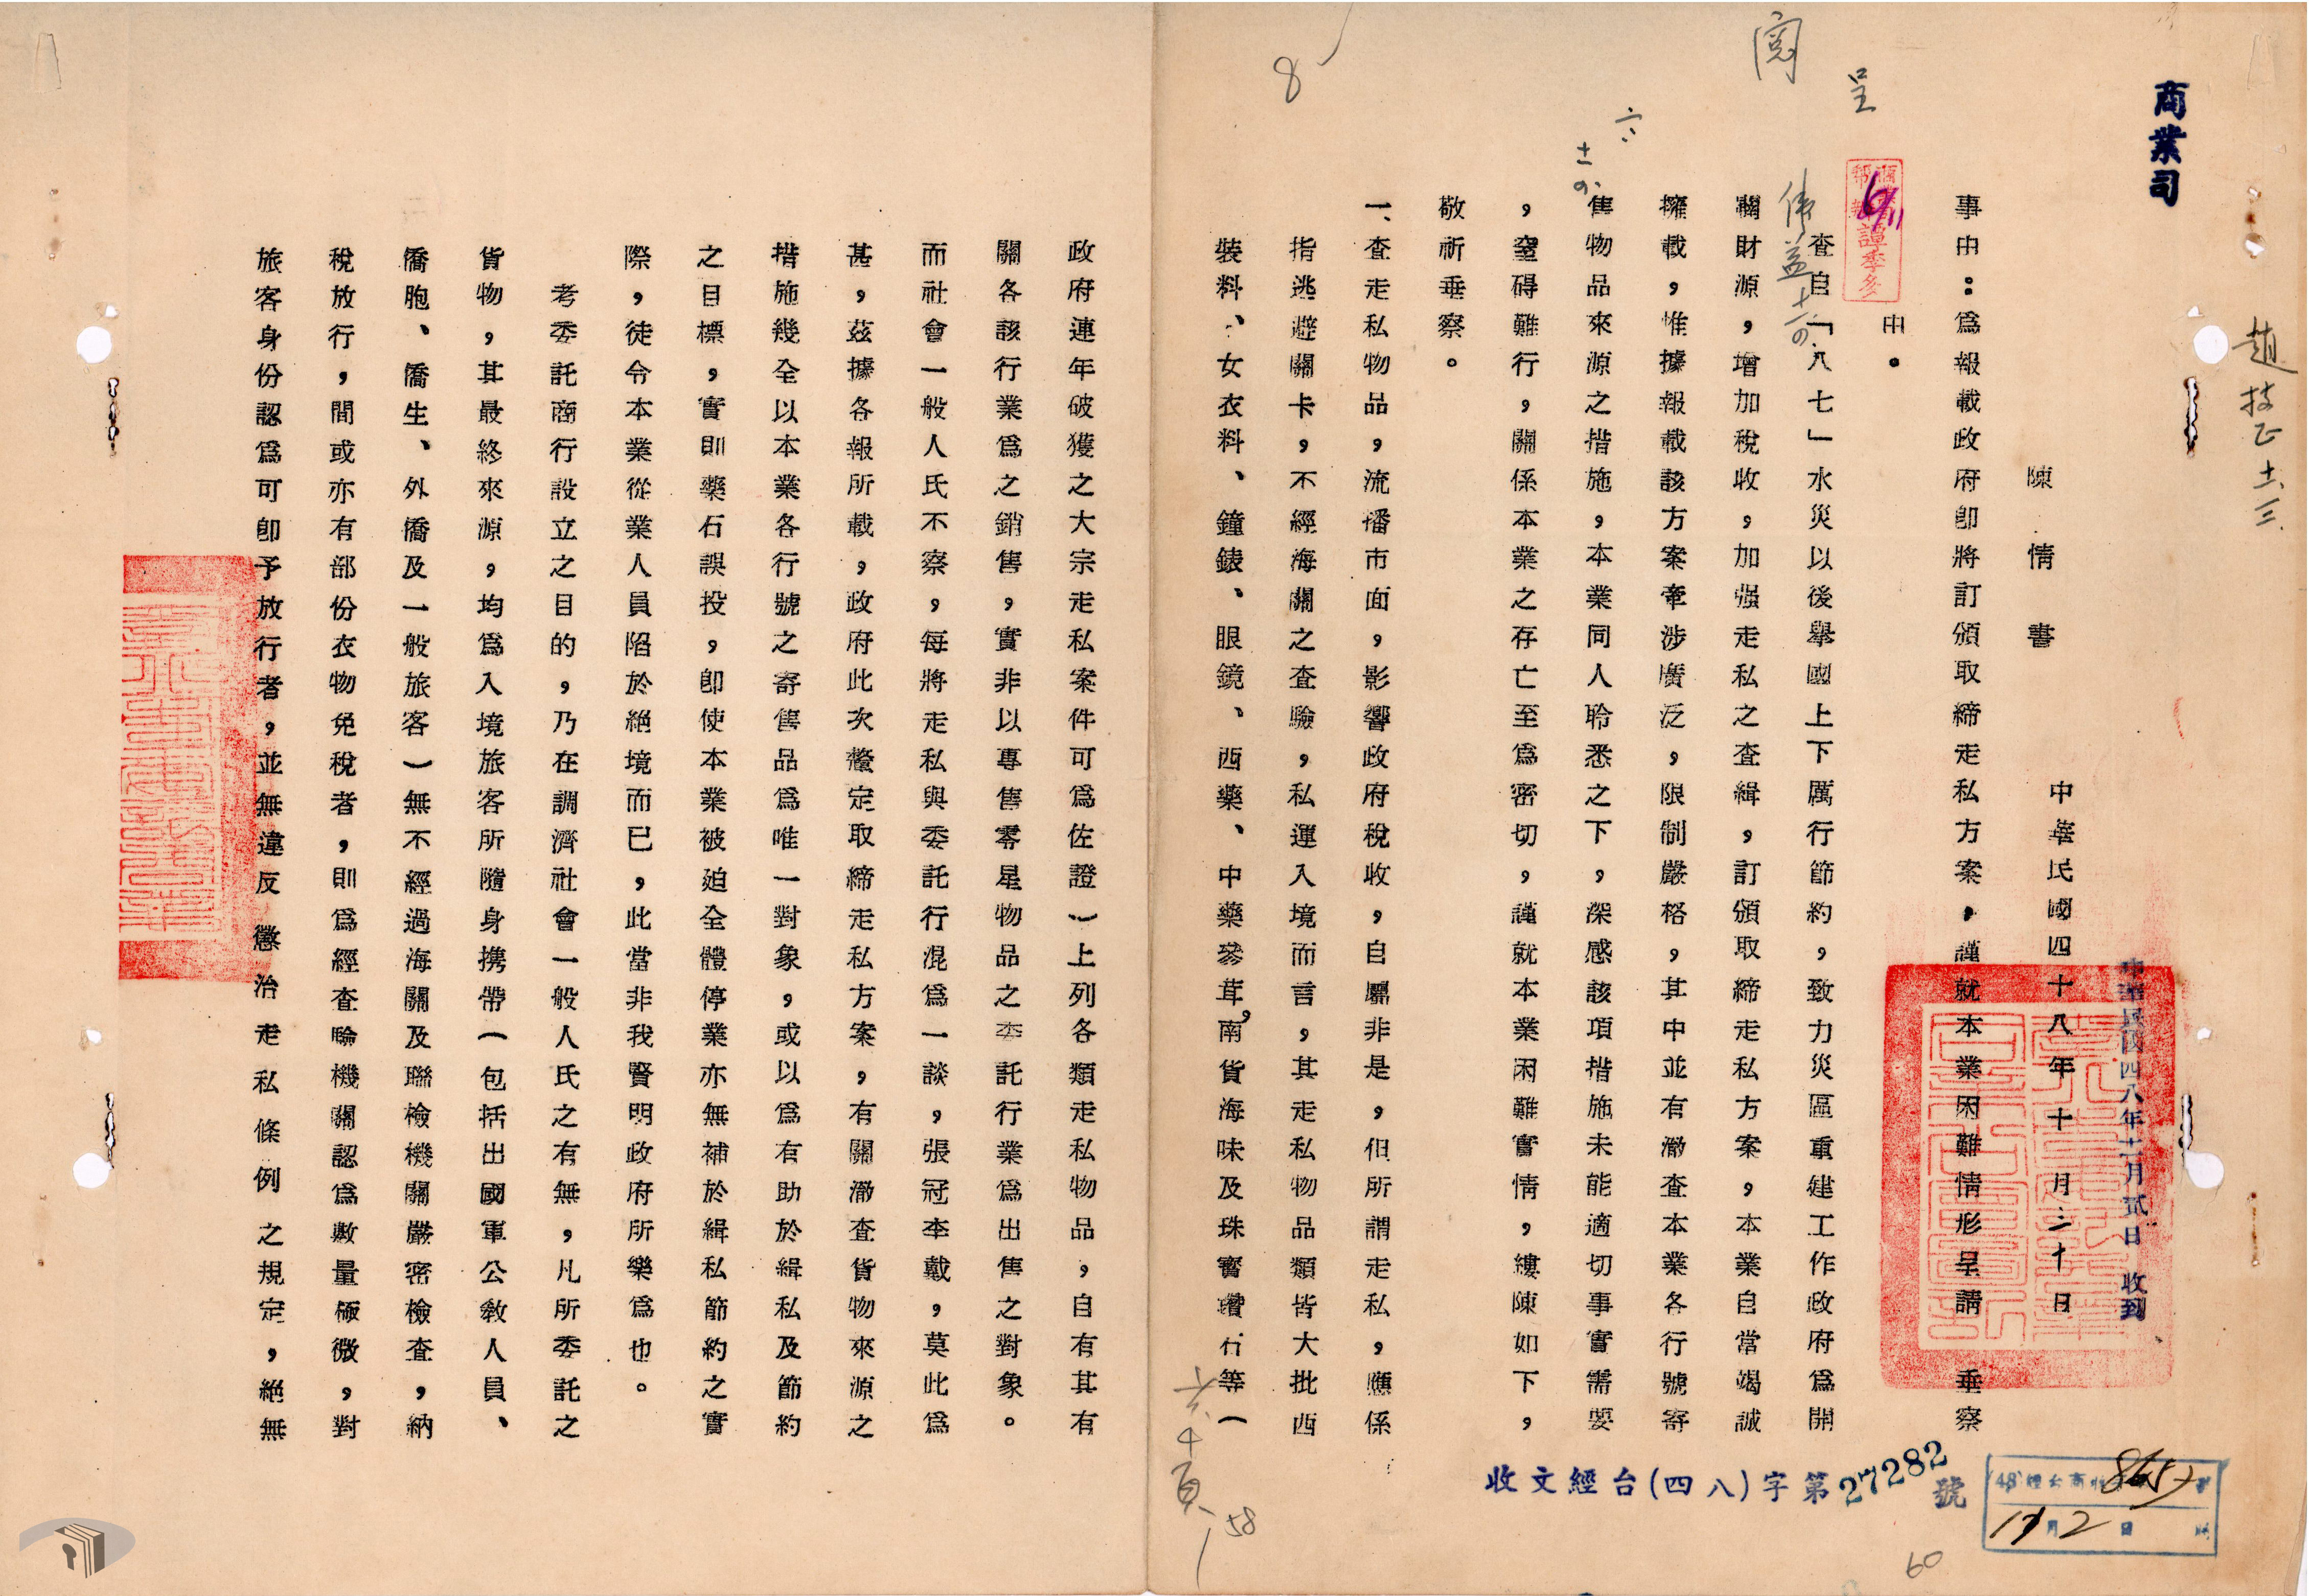 商業司
趙技正 十一、三
閱
呈
陳情書
中華民國四十八年十月三十日
中華民國四八年十一月貳日 收到
事由：爲報載政府卽將訂頒取締走私方案，謹就本業困難情形呈請 垂察
由。
查自「八七」水災以後舉國上下厲行節約，致力災區重建工作政府爲開
闢財源，增加稅收，加强走私之查緝，訂頒取締走私方案，本業自當竭誠
擁載，惟據報載該方案牽涉廣泛，限制嚴格，其中並有澈查本業各行號寄
售物品來源之措施，本業同人聆悉之下，深感該項措施未能適切事實需要
，窒碍難行，關係本業之存亡至爲密切，謹就本業困難實情，縷陳如下，
敬祈垂察。
一、查走私物品，流播市面，影響政府稅收，自屬非是，但所謂走私，應係
指逃避關卡，不經海關之查驗，私運入境而言，其走私物品類皆大批西
裝料、女衣料、鐘錶、眼鏡、西藥、中藥參茸，南貨海味及珠寶鑽石等（
政府連年破獲之大宗走私案件可爲佐證）上列各類走私物品，自有其有
關各該行業爲之銷售，實非以專售零星物品之委託行業爲出售之對象。
而社會一般人氏不察，每將走私與委託行混爲一談，張冠李戴，莫此爲
甚，茲據各報所載，政府此次釐定取締走私方案，有關澈查貨物來源之
措施幾全以本業各行號之寄售品爲唯一對象，或以爲有助於緝私及節約
之目標，實則藥石誤投，卽使本業被廹全體停業亦無補於緝私節約之實
際，徒令本業從業人員陷於絕境而已，此當非我賢明政府所樂爲也。
考委託商行設立之目的，乃在調濟社會一般人氏之有無，凡所委託之
貨物，其最終來源，均爲入境旅客所隨身攜帶（包括出國軍公教人員、
僑胞、僑生、外僑及一般旅客）無不經過海關及聯檢機關嚴密檢查，納
稅放行，間或亦有部份衣物免稅者，則爲經查驗機關認爲數量極微，對
旅客身份認爲可卽予放行者，並無違反懲治走私條例之規定，絕無
收文經台(四八)字第27282號
11月2日
共十頁
58
60
8